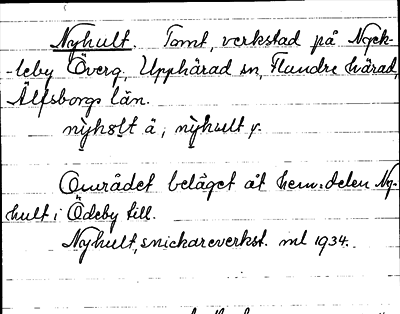 Nyhult. Tomt, verkstad på Nyck-
-leby Överg, Upphärad sn, Flundre härad,
Älfsborgs län.
nỳhɷlt ä, nỳhult y.
Området beläget åt hem.delen Ny-
hult i Ödeby till.
Nyhult, snickareverkst. ml 1934.